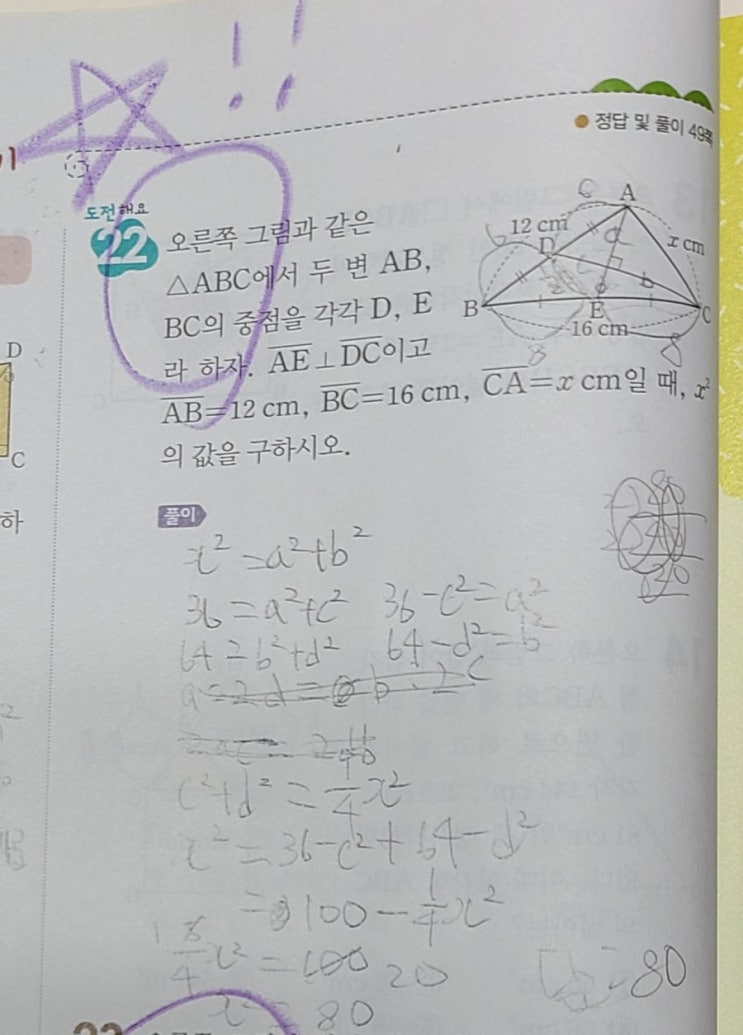 !!
● 정답 및 풀이 49쪽
도전해요
22 오른쪽 그림과 같은
△ABC에서 두 변 AB,
BC의 중점을 각각 D, E
라 하자. AE⊥DC이고
AB=12 cm, BC=16 cm, CA=x cm일 때, x²
의 값을 구하시오.
A
12 cm
D
x cm
B
E
C
16 cm
8
8
풀이
x²=a²+b²
36=a²+c² 36-c²=a²
64=b²+d² 64-d²=b²
c²+d²=1/4x²
x²=36-c²+64-d²
=100-1/4x²
x²=80
답:80
D
C
하